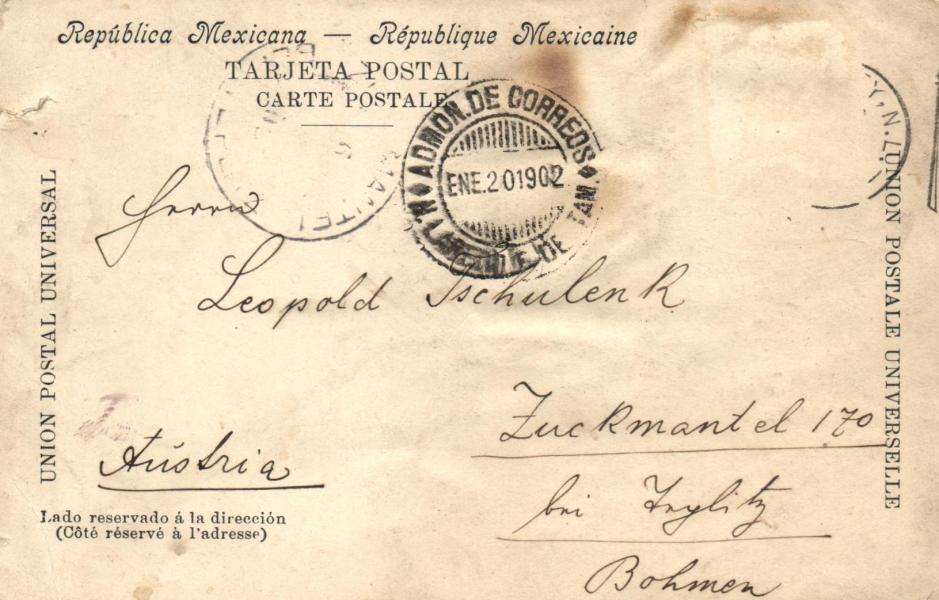 República Mexicana — République Mexicaine
TARJETA POSTAL
CARTE POSTALE
ADMON. DE CORREOS
ENE. 20 1902
TAM.
Y, N.
UNION POSTAL UNIVERSAL
UNION POSTALE UNIVERSELLE
Herrn
Leopold Tschulenk
Zuckmantel 170
bei Teplitz
Böhmen
Aústria
Lado reservado á la dirección
(Côté réservé à l'adresse)